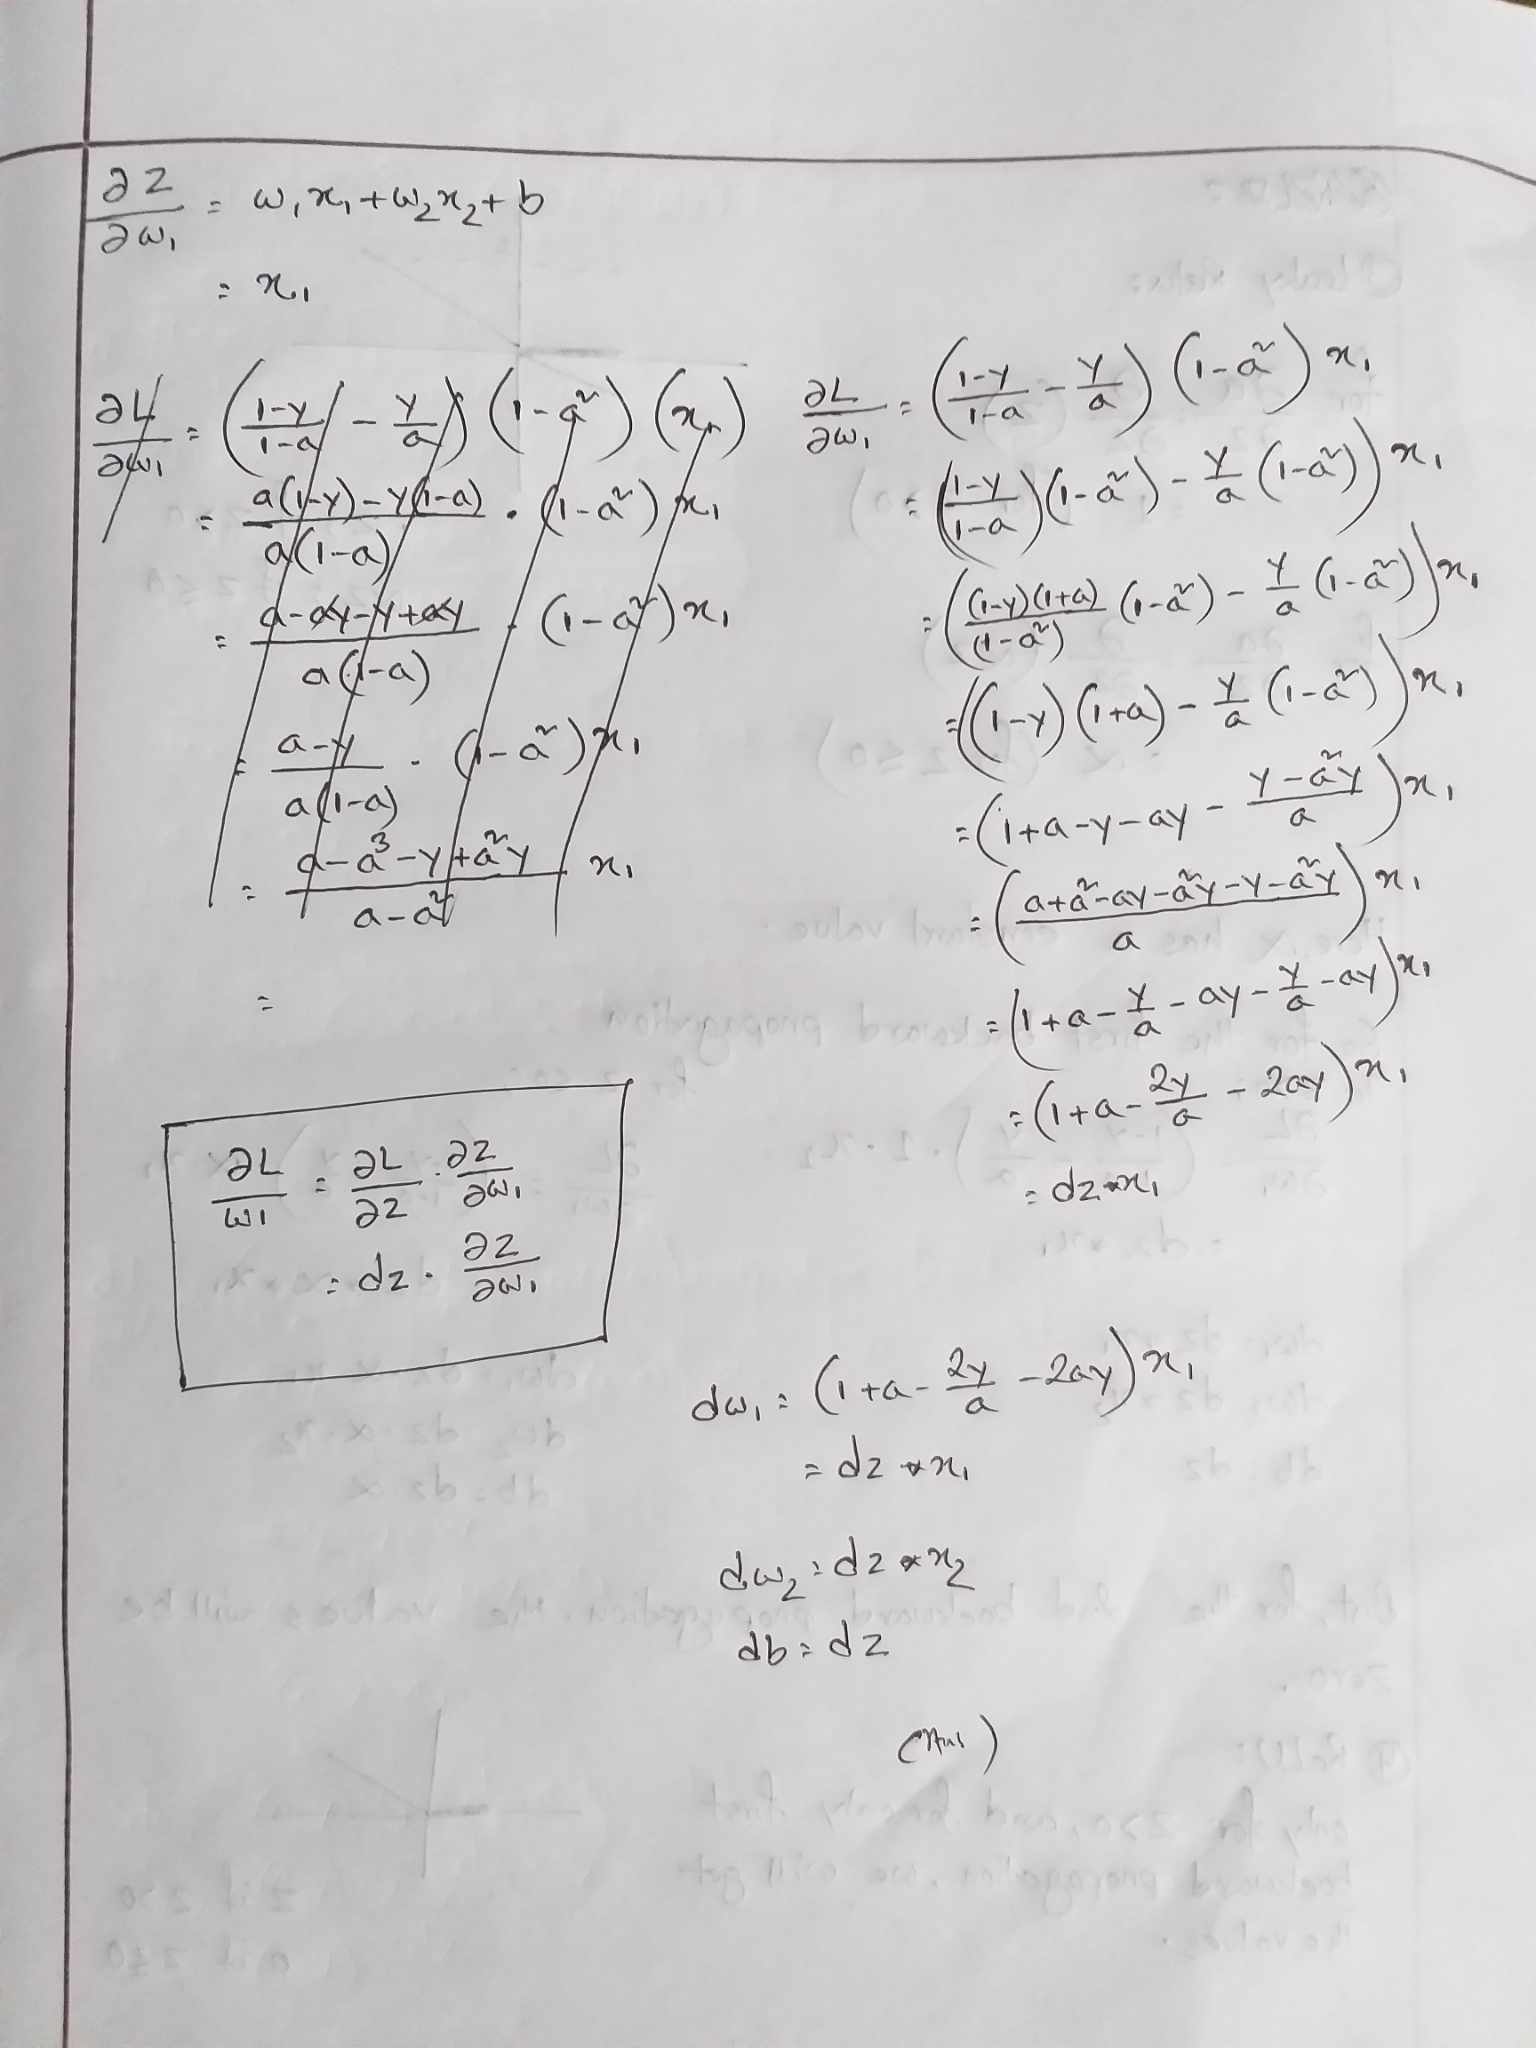 ∂z/∂w₁ = w₁x₁+w₂x₂+b
= x₁
∂L/∂w₁ = ((1-y)/(1-a) - y/a) (1-a²) (x₁)
= (a(1-y)-y(1-a))/(a(1-a)) · (1-a²) x₁
= (a-ay-y+ay)/(a(1-a)) · (1-a²) x₁
= (a-y)/(a(1-a)) · (1-a²) x₁
= (a-a³-y+a²y)/(a-a²) x₁
=
∂L/w₁ = ∂L/∂z · ∂z/∂w₁
= dz · ∂z/∂w₁
∂L/∂w₁ = ((1-y)/(1-a) - y/a) (1-a²) x₁
= (((1-y)/(1-a))(1-a²) - y/a (1-a²)) x₁
= (((1-y)(1+a))/(1-a²) (1-a²) - y/a (1-a²)) x₁
= ((1-y)(1+a) - y/a (1-a²)) x₁
= (1+a-y-ay - (y-a²y)/a) x₁
= ((a+a²-ay-a²y-y-a²y)/a) x₁
= (1+a-y/a-ay-y/a-ay) x₁
= (1+a-2y/a-2ay) x₁
= dz*x₁
dw₁ = (1+a-2y/a-2ay) x₁
= dz*x₁
dw₂ = dz*x₂
db = dz
(Ans)